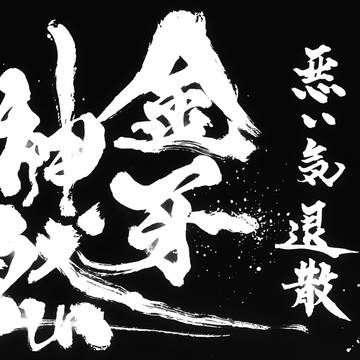 悪い気退散
金牙
神然